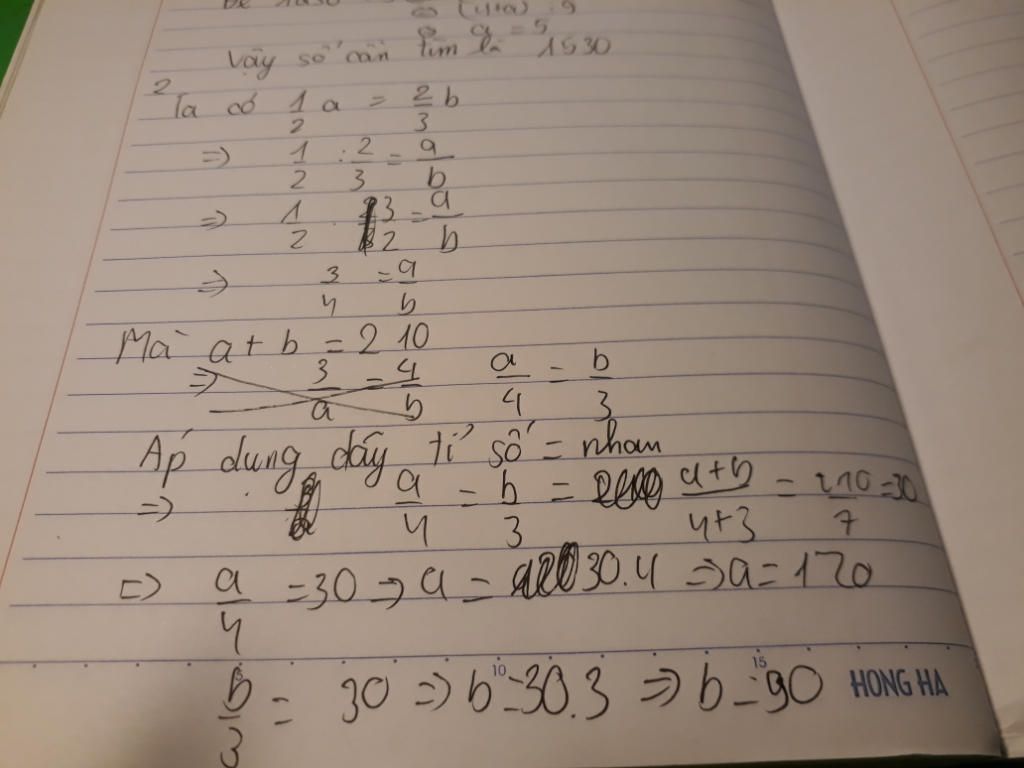 (4+a) : 9
a = 5
Vậy số cần tìm là 1530
2 Ta có 1/2 a = 2/3 b
=> 1/2 : 2/3 = a/b
=> 1/2 . 3/2 = a/b
=> 3/4 = a/b
Mà a + b = 210
=> 3/a = 4/b a/4 = b/3
Áp dung dãy tỉ số = nhau
=> a/4 = b/3 = a+b/4+3 = 210/7 = 30
=> a/4 = 30 => a = 30.4 => a = 120
b/3 = 30 => b = 30.3 => b = 90
10 15 HONG HA